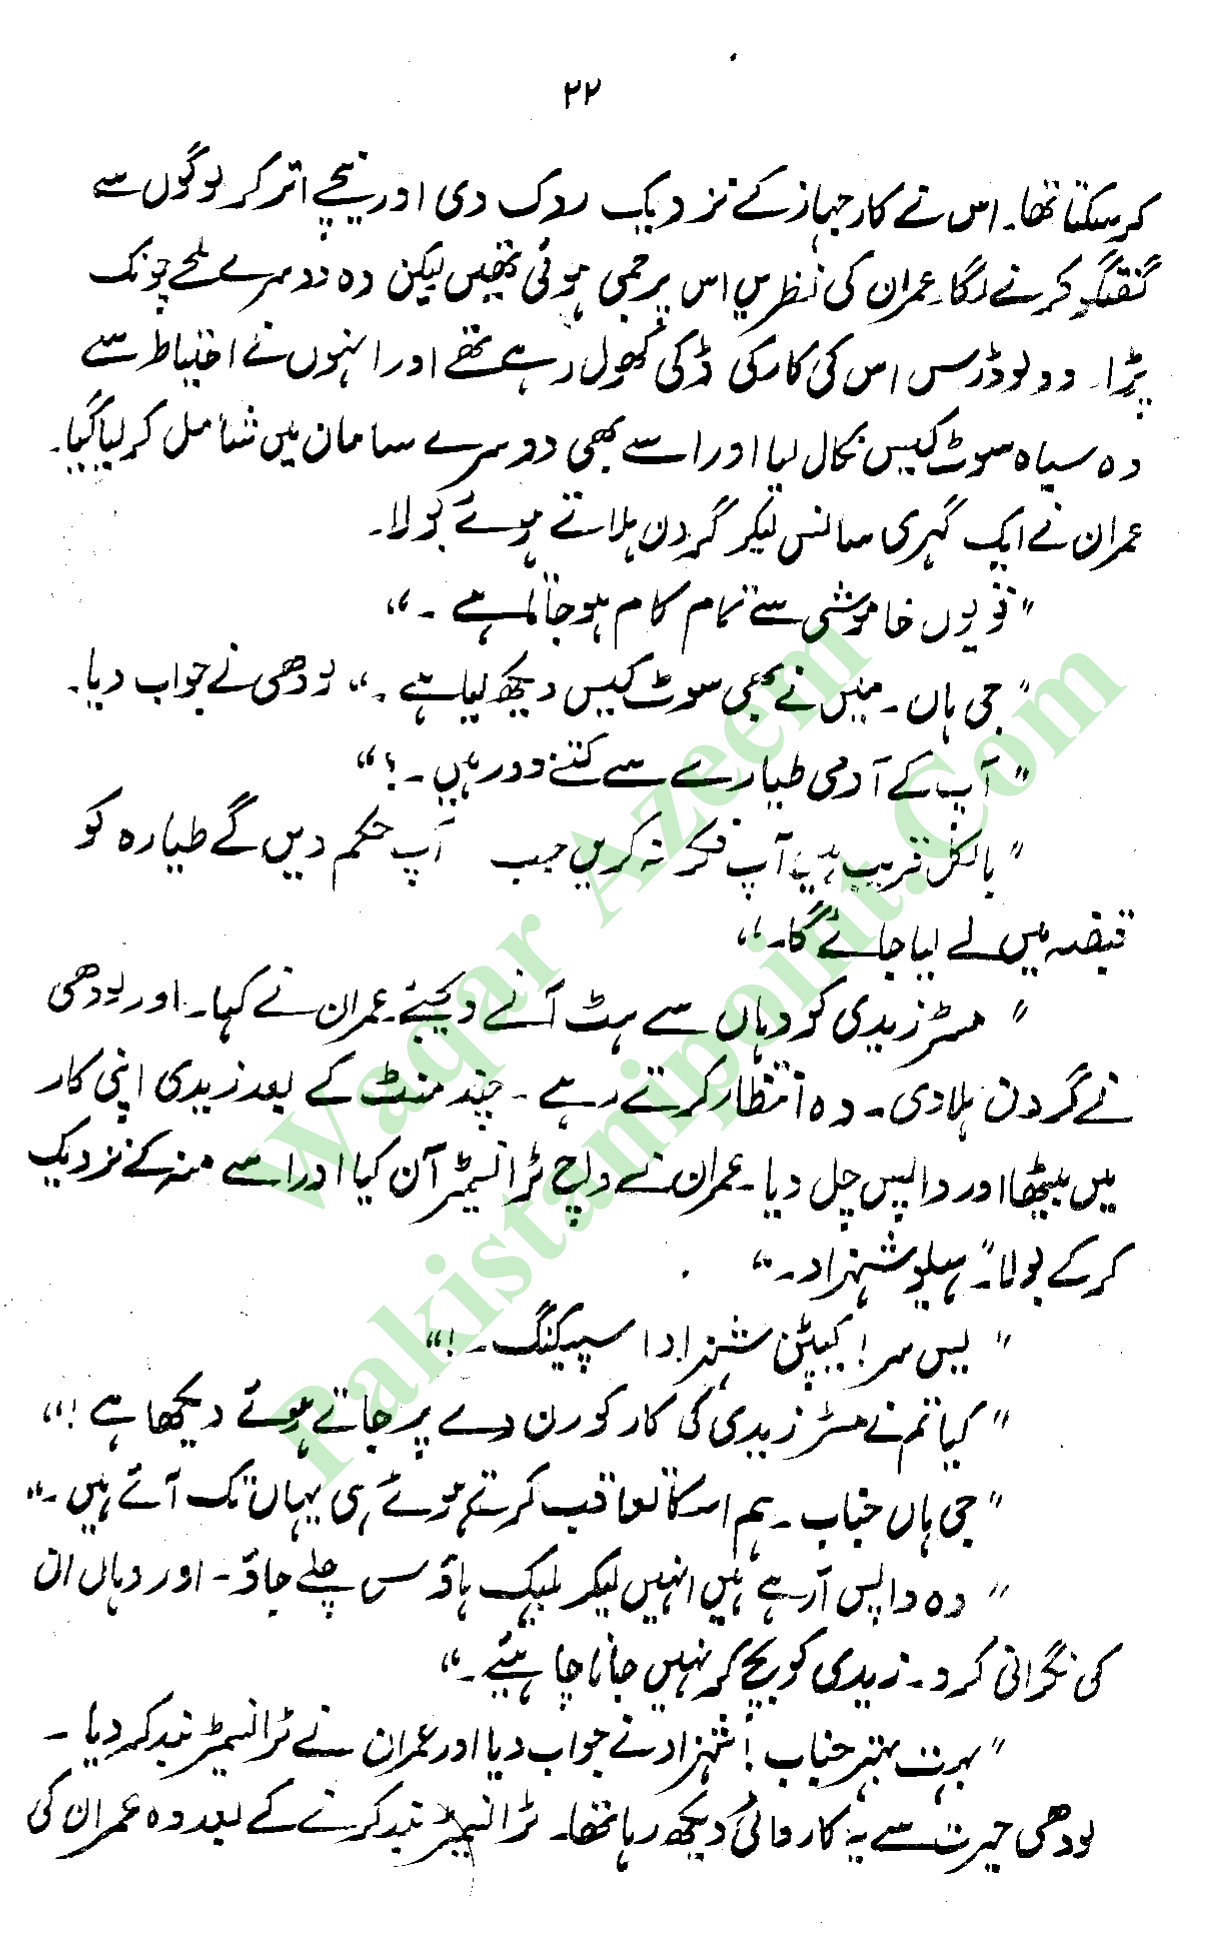 ۲۲
کر سکتا تھا۔ اس نے کار جہاز کے نزدیک روک دی اور نیچے اتر کر لوگوں سے
گفتگو کرنے لگا۔ عمران کی نظریں اس پر جمی ہوئی تھیں لیکن وہ دوسرے لمحے چونک
پڑا۔ دو لوڈرس اس کی کار کی ڈکی کھول رہے تھے اور انہوں نے احتیاط سے
وہ سیاہ سوٹ کیس نکال لیا اور اسے بھی دوسرے سامان میں شامل کر لیا گیا۔
عمران نے ایک گہری سانس لیکر گردن ہلاتے ہوئے بولا۔
"تو یوں خاموشی سے تمام کام ہو جاتا ہے ۔"
"جی ہاں۔ میں نے بھی سوٹ کیس دیکھ لیا ہے ۔" لودھی نے جواب دیا۔
"آپ کے آدمی طیارے سے کتنے دور ہیں ۔؟"
"بالکل قریب ہیں آپ فکر نہ کریں جب آپ حکم دیں گے طیارہ کو
قبضہ میں لے لیا جائے گا۔"
"مسٹر زیدی کو وہاں سے ہٹ آنے دیجئے۔ عمران نے کہا۔ اور لودھی
نے گردن ہلا دی۔ وہ انتظار کرتے رہے ۔ چند منٹ کے بعد زیدی اپنی کار
میں بیٹھا اور واپس چل دیا۔ عمران نے واچ ٹرانسیمٹر آن کیا اور اسے منہ کے نزدیک
کر کے بولا۔" ہیلو شہزاد۔"
"یس سر! کیپٹن شہزاد اسپیکنگ ۔!"
"کیا تم نے مسٹر زیدی کی کار کو رن وے پر جاتے ہوئے دیکھا ہے !"
"جی ہاں جناب ۔ ہم اس کا تعاقب کرتے ہوئے ہی یہاں تک آئے ہیں ۔"
"وہ واپس آ رہے ہیں انہیں لیکر بلیک ہاؤس چلے جاؤ۔ اور وہاں ان
کی نگرانی کرو۔ زیدی کو بچ کر نہیں جانا چاہیئے ۔"
"بہت بہتر جناب ! شہزاد نے جواب دیا اور عمران نے ٹرانسیمٹر بند کر دیا ۔
لودھی حیرت سے یہ کاروائی دیکھ رہا تھا۔ ٹرانسیمٹر بند کرنے کے بعد وہ عمران کی
Waqar Azeem
Pakistanipoint.Com